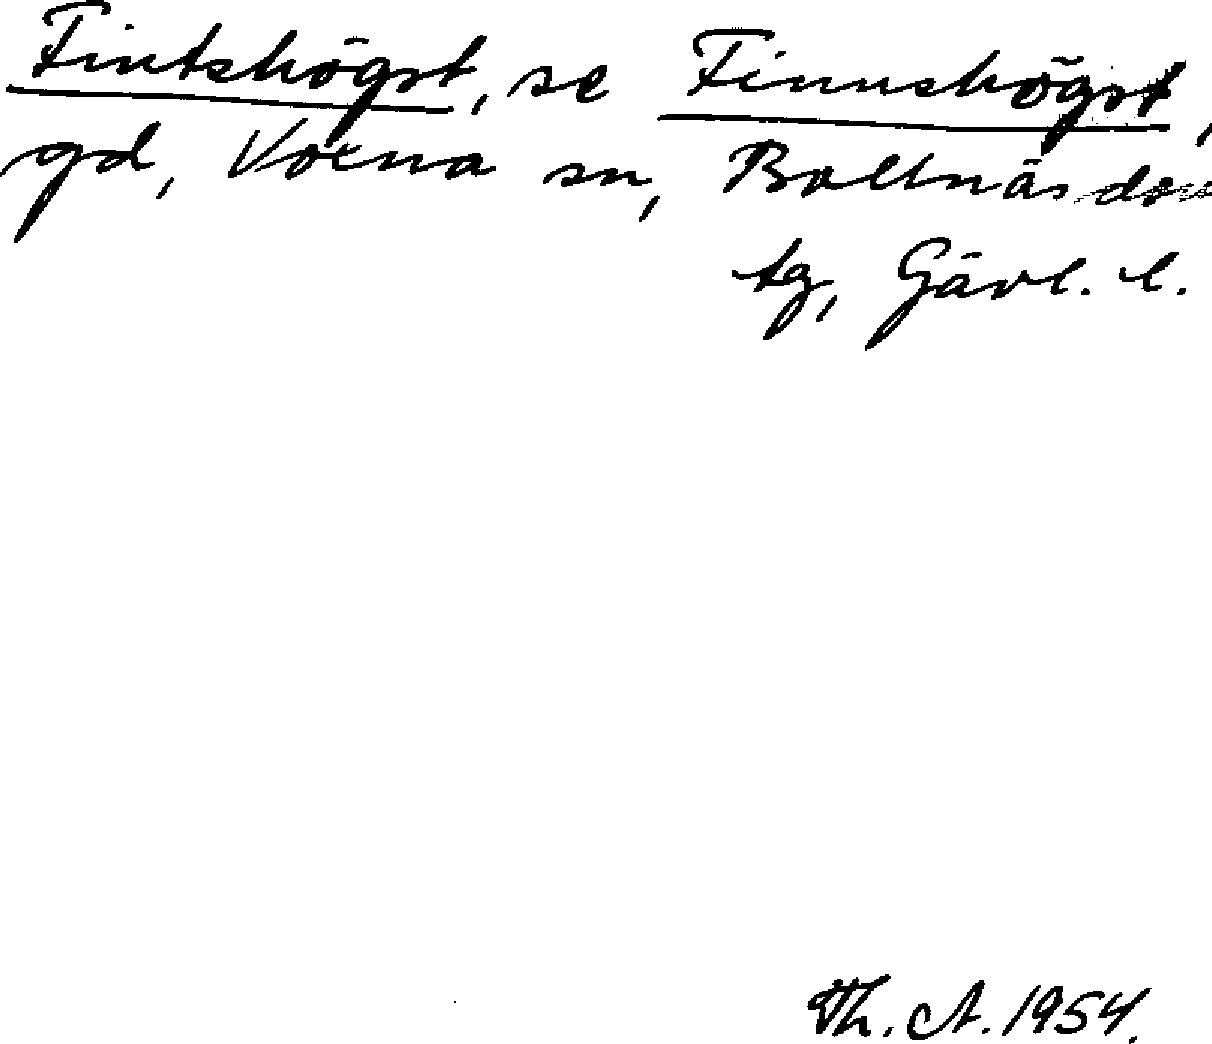 Fintshögst, se Finnshögst,
gd, Voxna sn, Bollnäs doms
tg, Gävl. l.
Th. A. 1954.